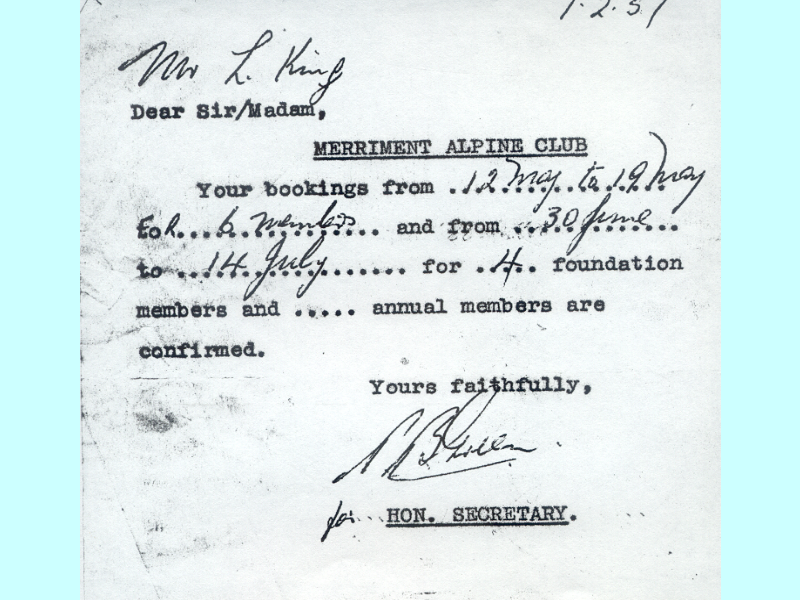 Mr L. King
Dear Sir/Madam,
MERRIMENT ALPINE CLUB
Your bookings from .12 May to 19 May
foR...6 members... and from ...30 June.......
to ...14 July....... for .4.. foundation
members and ..... annual members are
confirmed.
Yours faithfully,
for... HON. SECRETARY.